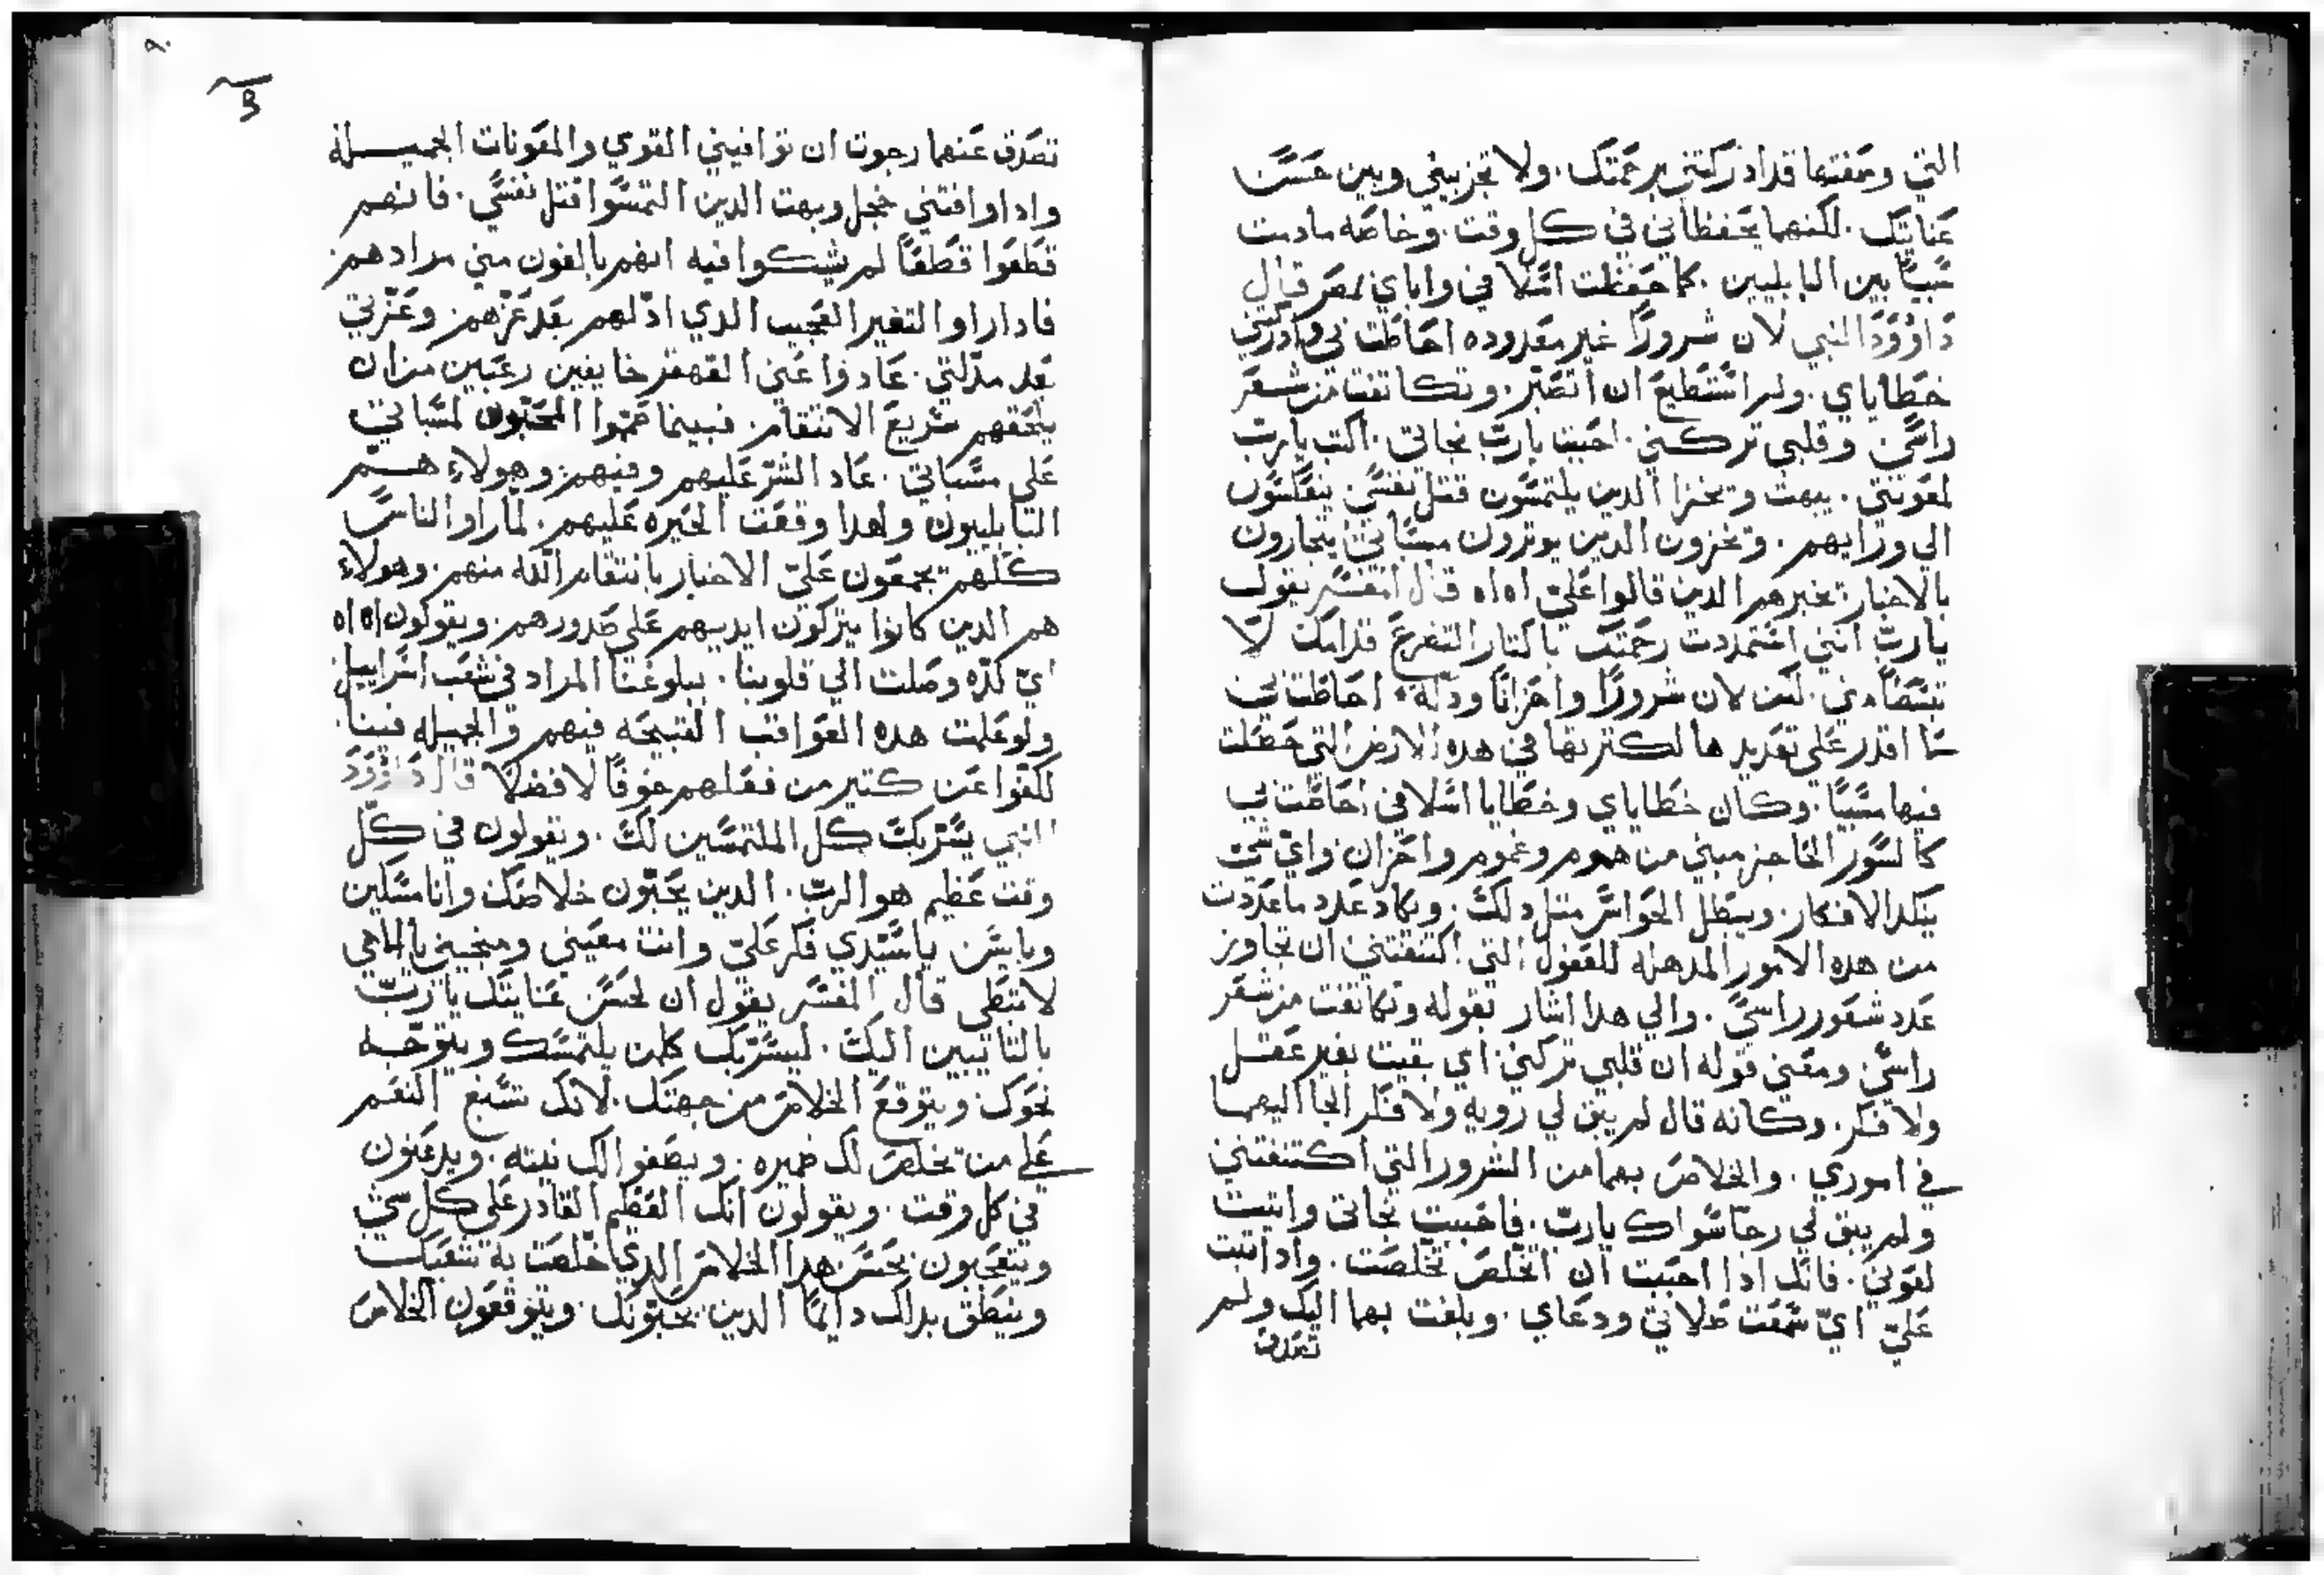 التي وصفتها قد ادركتني برحمتك. ولا تجزبيني وبين حسن
عنايتك. لكنهما يحفظاني في كل وقت. وخاصه مادمت
سبيًا بين البابليين. كما حفظت اسلافي واباي بمصر قال
داوود النبي لان شرورًا غير معدوده احاطت بي وادركتني
خطاياي. ولم استطيع ان اتصبر. وتكاتفت من شعر
راسي وقلبي تركني. احبيت يارب نجاتي. اكب يارب
لمعونتي. يبهت ويخزا الدين يلتمسون قتل نفسي ينعكسون
الي ورايهم. ويخزون الدين يوترون مسباتي يتجارون
بالاخبار تخبرهم الدين قالوا علي اه اه قال المفسر يقول
يارب انني استمديت رحمتك باكتار التضرع قدامك لا
تبتضادني. لعن لان شرورًا واحزانًا ودله احاطت بي
ما اقدر علي تعديدها لكترتها في هده الارض التي حصلت
فيها سبيًا. وكان خطاياي وخطايا اسلافي احاطت بي
كالسور الحاجز مبني من هموم وغموم واحزان واي شي
يبلد الافكار. ويبطل الحواس متل دلك. وكاد عدد ماعددت
من هده الامور المدهله للعقول التي اكتنفتني ان تجاوز
عدد شعور راسي. والي هدا اشار بقوله وتكاتفت من شعر
راسي ومعني قوله ان قلبي تركني اي بقيت بغير عقل
ولا فكر. وكانه قال لم يبق لي رويه ولا فكر الجا اليهما
في اموري. والخلاص بهما من الشرور التي اكتنفتني
ولم يبق لي رجا سواك يارب. فاحببت نجاتي واتيت
لعوني. فانك ادا احببت ان اتخلص تخلصت. وادا اتيت
علي اي سمعت صلاتي ودعاي. وبلغت بهما اليك ولم
تصدق
تصدق عنهما رجوت ان توافيني القوي والمعونات الجميله
وادا وافتني خجل وبهت الدين التمسوا قتل نفسي. فانهم
قطعوا قطعًا لم يشكوا فيه انهم بالغون مني مرادهم
فادا راوا التغير العجيب الدي ادلهم بعد عزهم وعزني
بعد مدلتي. عادوا عني القهقر خايفين رعبين من ان
يلحقهم سريع الانتقام. فبينما هموا المحبون لمسباتي
علي مسباتي. عاد الشر عليهم وفيهم وهولاء هم
البابليون ولهدا وقعت الحيره عليهم. لما راوا الناس
كلهم يجمعون علي الاخبار بانتقام الله منهم. وهولاء
هم الدين كانوا يتركون ايديهم علي صدورهم. ويقولون اه اه
اي لده وصلت الي قلوبنا. ببلوغنا المراد في شعب اسراييل
ولو علمت هده العواقب القبيحه فيهم والجميله فينا
لكفوا عن كتير من فعلهم خوفًا لافضلًا قال داوود
النبي يسر بك كل الملتمسين لك. ويقولون في كل
وقت عظيم هو الرب. الدين يحبون خلاصك وانا مسكين
وبايس ياسيدي فكر علي وانت معيني ومنجيني ياالاهي
لاتبطي قال المفسر يقول ان لحسن عنايتك يارب
بالتايبين اليك. ليسر بك كلمن يلتمسك ويتوجه
نحوك. ويتوقع الخلاص من جهتك. لانك تسبغ النعم
علي من يخلص لك ضميره. ويصفوا لك نيته. ويدعنون
في كل وقت. ويقولون انك العظيم القادر علي كل شي
ويتعجبون بحسن هدا الخلاص الدي خلصت به شعبك
وينطق بدلك دايمًا الدين يحبونك. ويتوقعون الخلاص